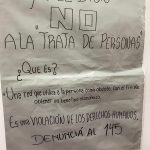 NO
A LA "TRATA DE PERSONAS"
¿QUE ES?
Una red que utiliza a la persona como objeto. Con el fin de
obtener un beneficio económico.
ES UNA VIOLACIÓN DE LOS DERECHOS HUMANOS.
DENUNCIÁ AL 145